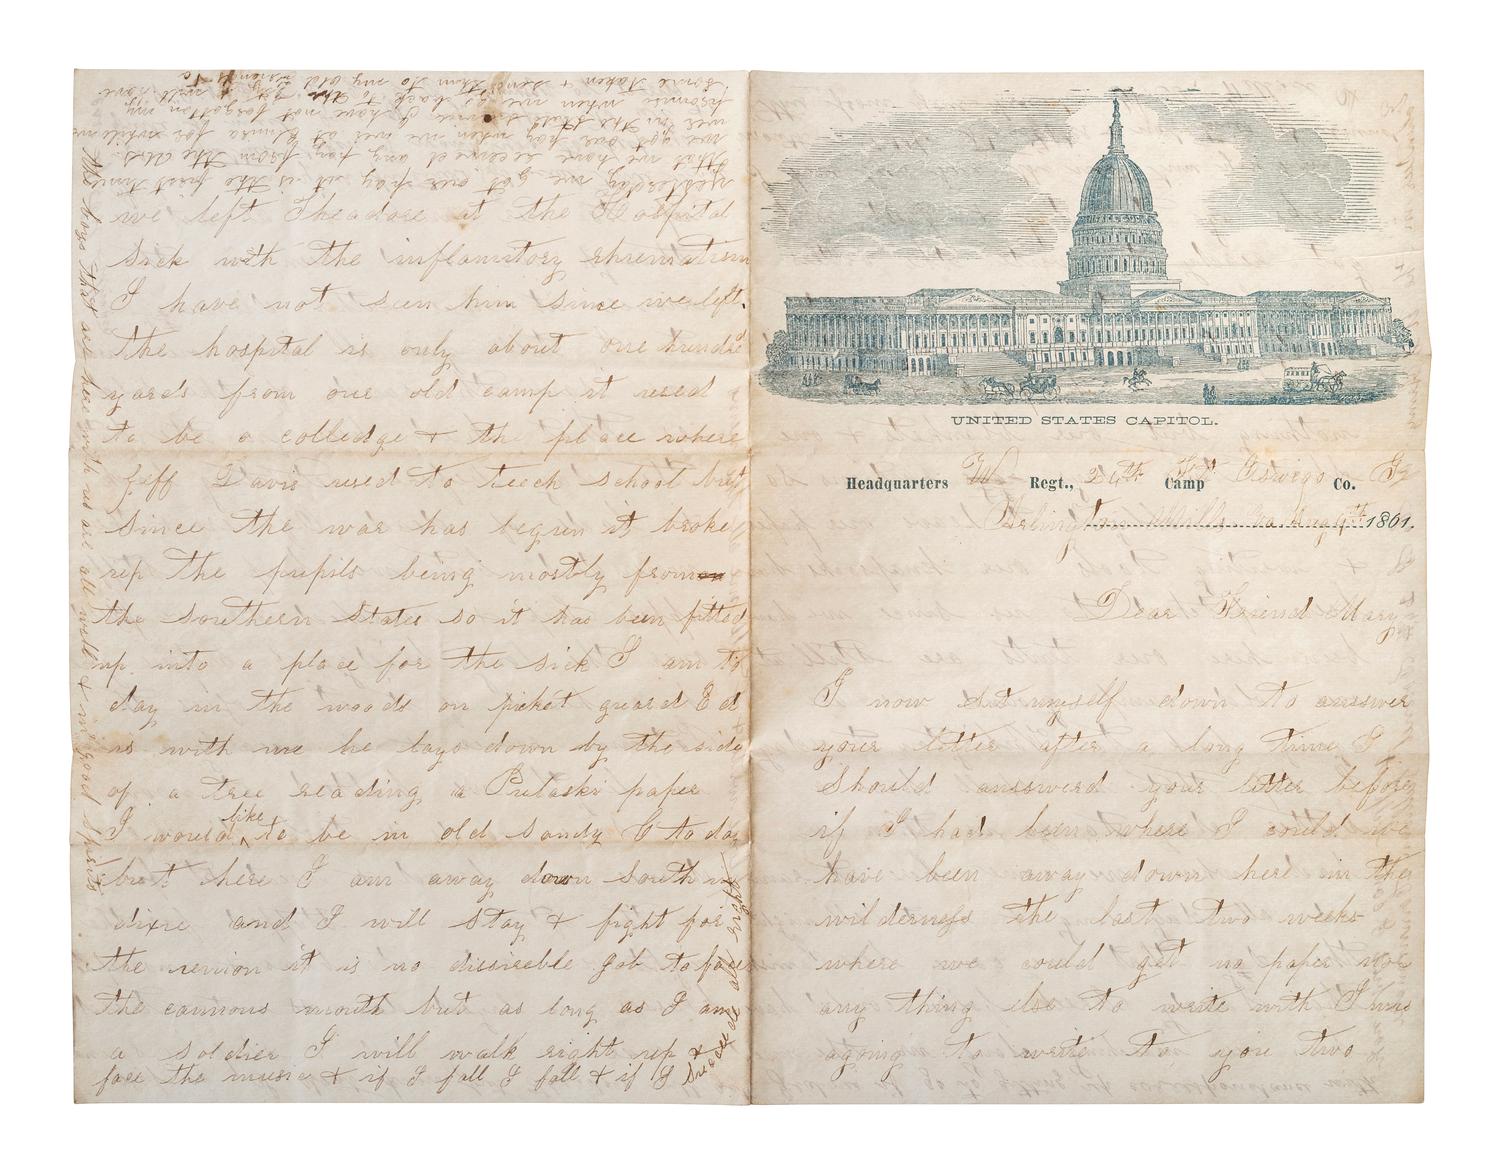 UNITED STATES CAPITOL.
Headquarters Regt., 24th Camp Oswego Co. G
Arlington Mills Va. Aug 9th 1861.
Dear Friend Mary
I now set myself down to answer
your letter after a long time I
should answerd your letter before
if I had been where I could we
have been away down here in the
wilderness the last two weeks
where we could get no paper nor
any thing else to write with I was
agoing to write to you two
we left Theadore at the Hospital
sick with the inflamitory rhumatism
I have not seen him since we left.
the hospital is only about one hundred
yards from our old camp it used
to be a colledge + the place where
Jeff Davis used to teech school but
since the war has begun it broke
up the pupils being mostly from
the southern States so it has been fitted
up into a place for the sick I am to
day in the woods on picket guard Ed
is with me he lays down by the side
of a tree reading a Pulaski paper
I would like to be in old sandy C to day
but here I am away down south in
dixie and I will stay + fight for
the union it is no disireeble job to face
the cannons mouth but as long as I am
a soldier I will walk right up +
face the music + if I fall I fall + if I
succeede all right
the boys that are here with us are all well + in good spirits
yesterday we got our pay it is the first time
that we have received any pay from the
we got our pay when we was at Elmira for while we
was in the State I have not forgotten my
promise when we go back to I will have
some taken + send them to my old friends